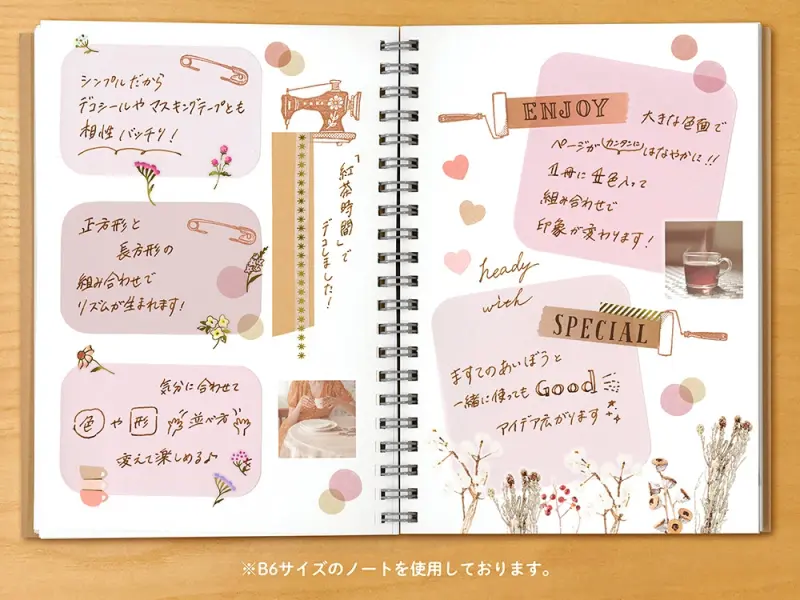 シンプルだから
デコシールや マスキングテープとも
相性バッチリ!
正方形と
長方形の
組み合わせで
リズムが生まれます!
気分に合わせて
色や形 並べ方
変えて楽しめる♪
「紅茶時間」で
デコしました!
ENJOY
大きな色面で
ページがカンタンにはなやかに!!
1冊に4色入って
組み合わせで
印象が変わります!
heady
with
SPECIAL
ますてのあいぼうと
一緒に使ってもGood
アイデア広がります
※B6サイズのノートを使用しております。